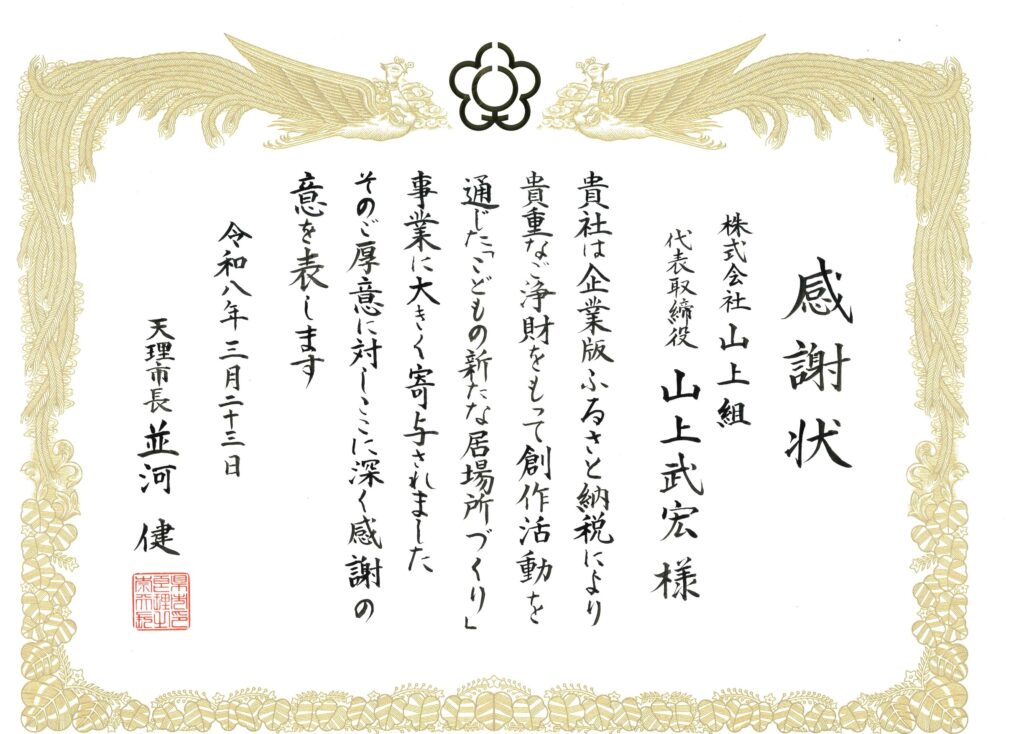 感謝状
株式会社 山上組
代表取締役 山上武宏様
貴社は企業版ふるさと納税により
貴重なご浄財をもって創作活動を
通じた「こどもの新たな居場所づくり」
事業に大きく寄与されました
そのご厚意に対しここに深く感謝の
意を表します
令和八年三月二十三日
天理市長 並河 健